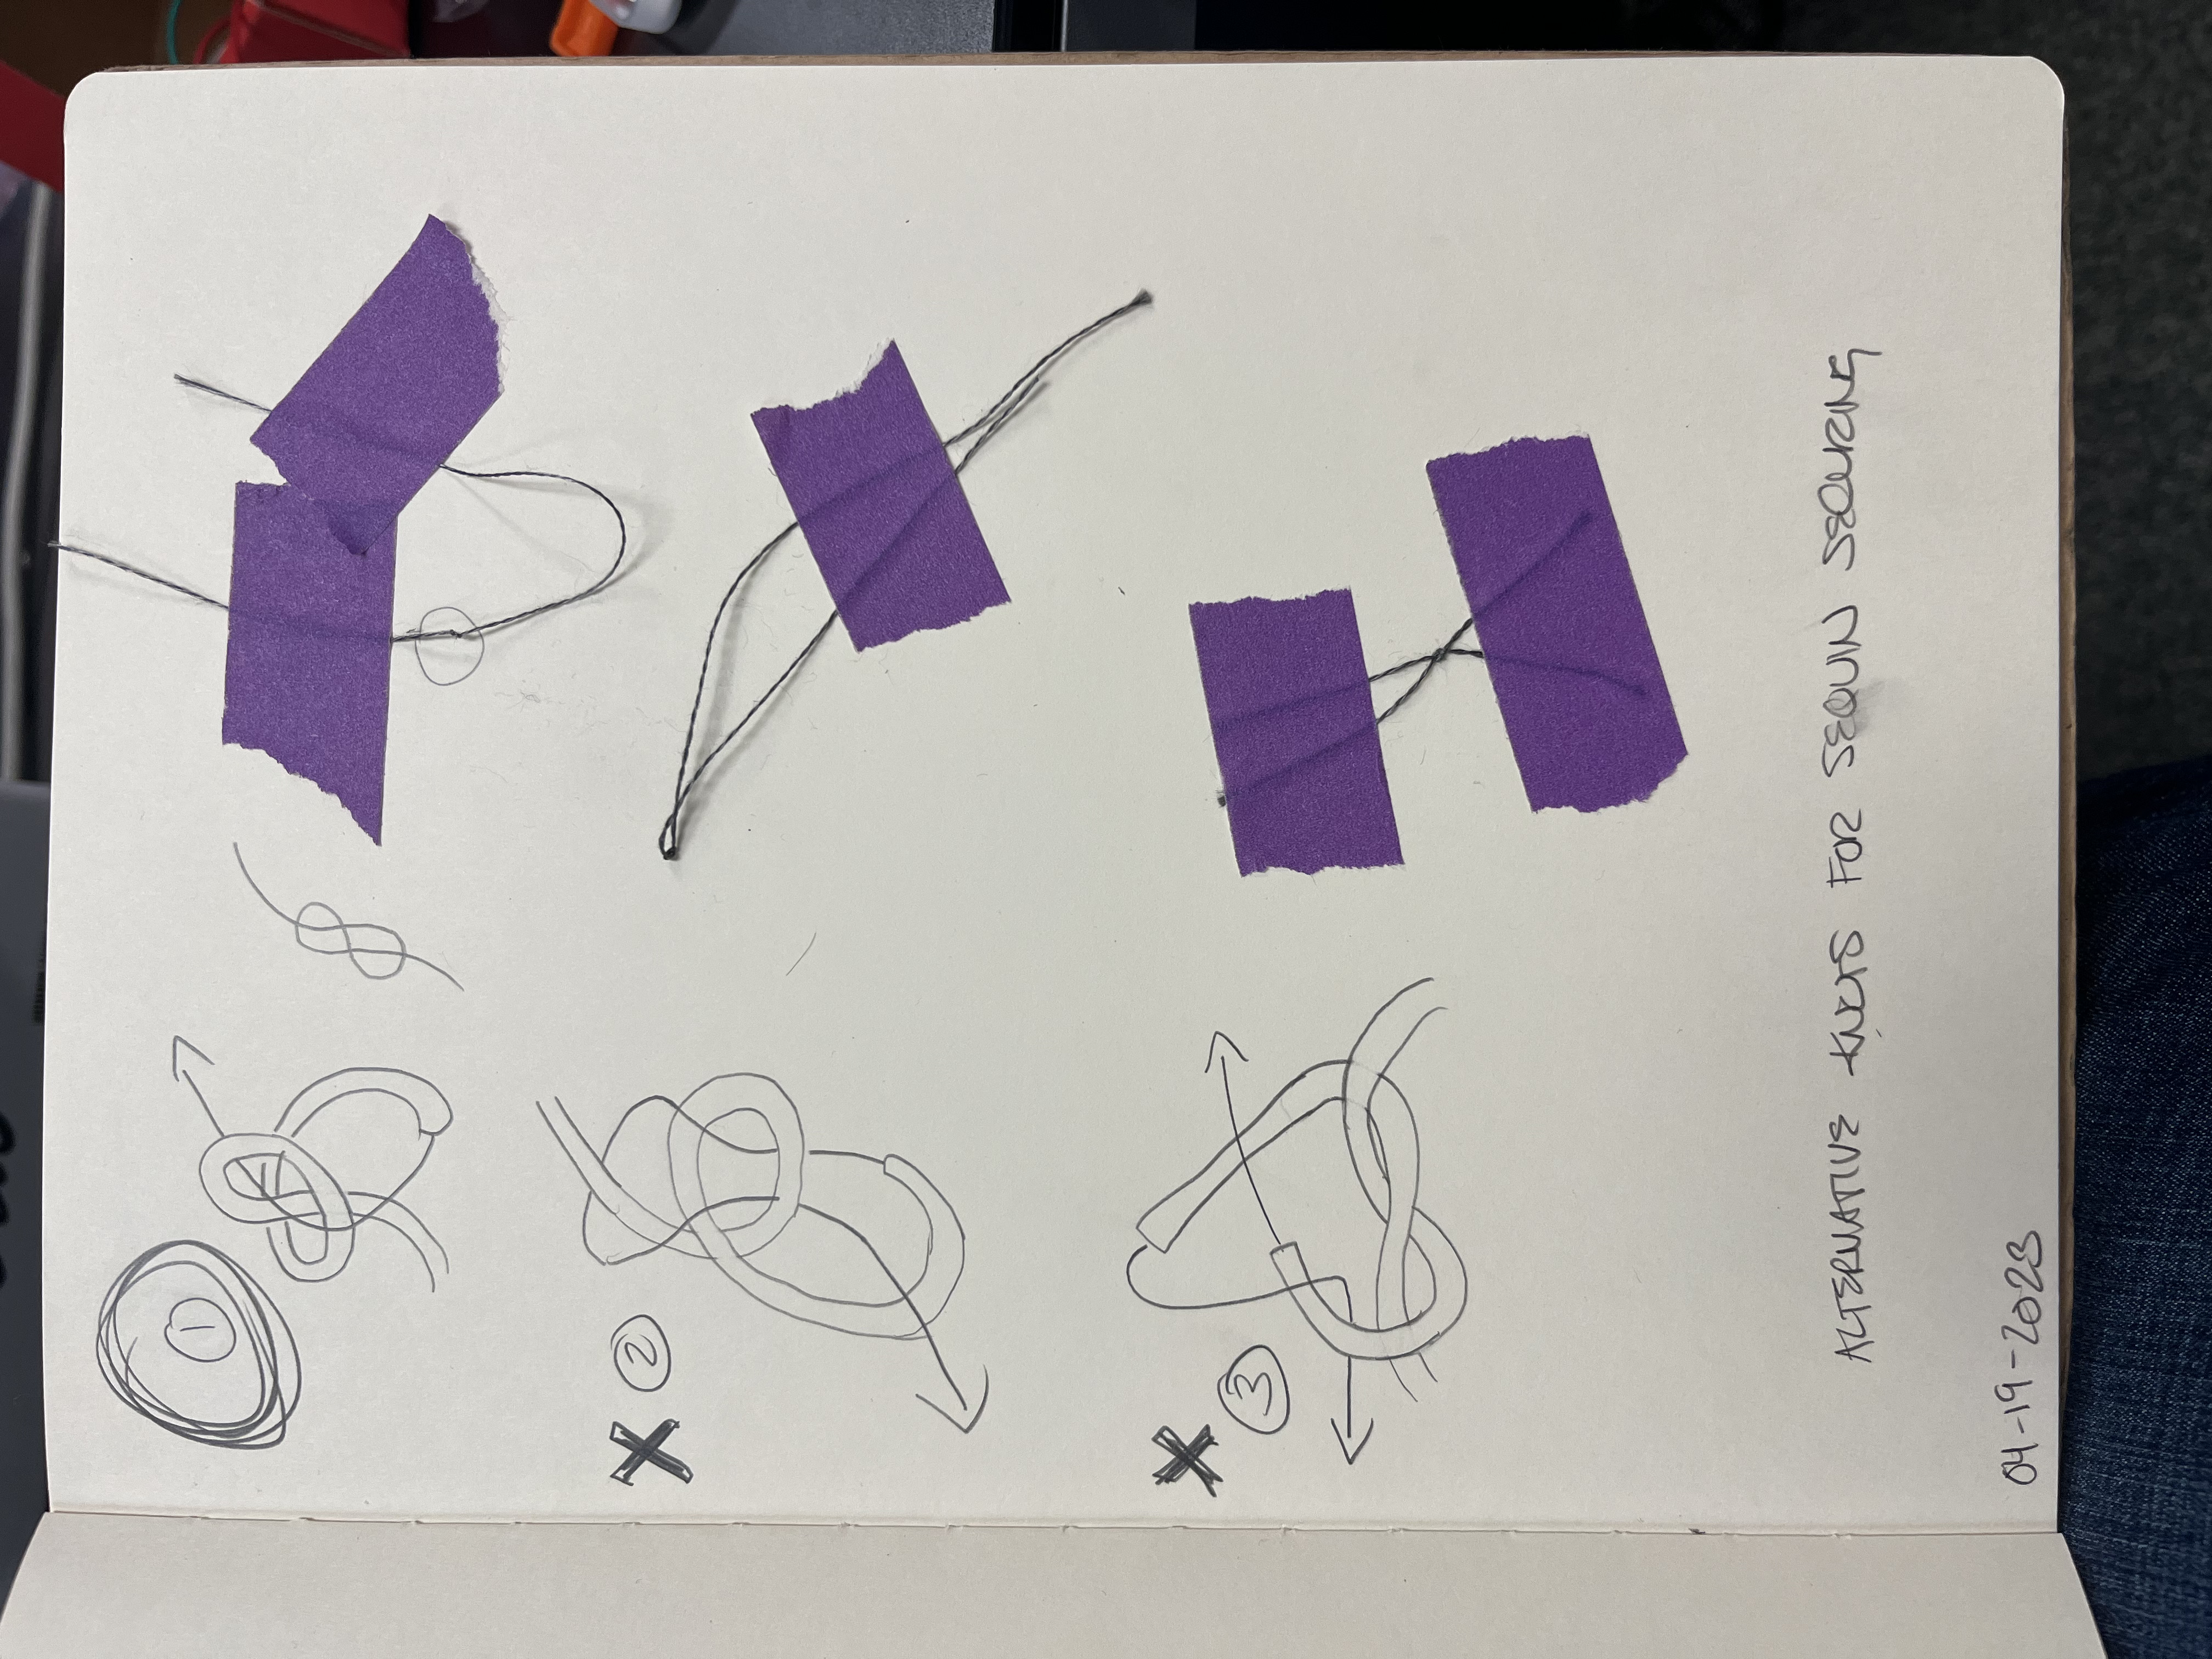 1
X 2
X
3
ALTERNATIVE KNOTS FOR SEQUIN SEQURING
04-19-2023